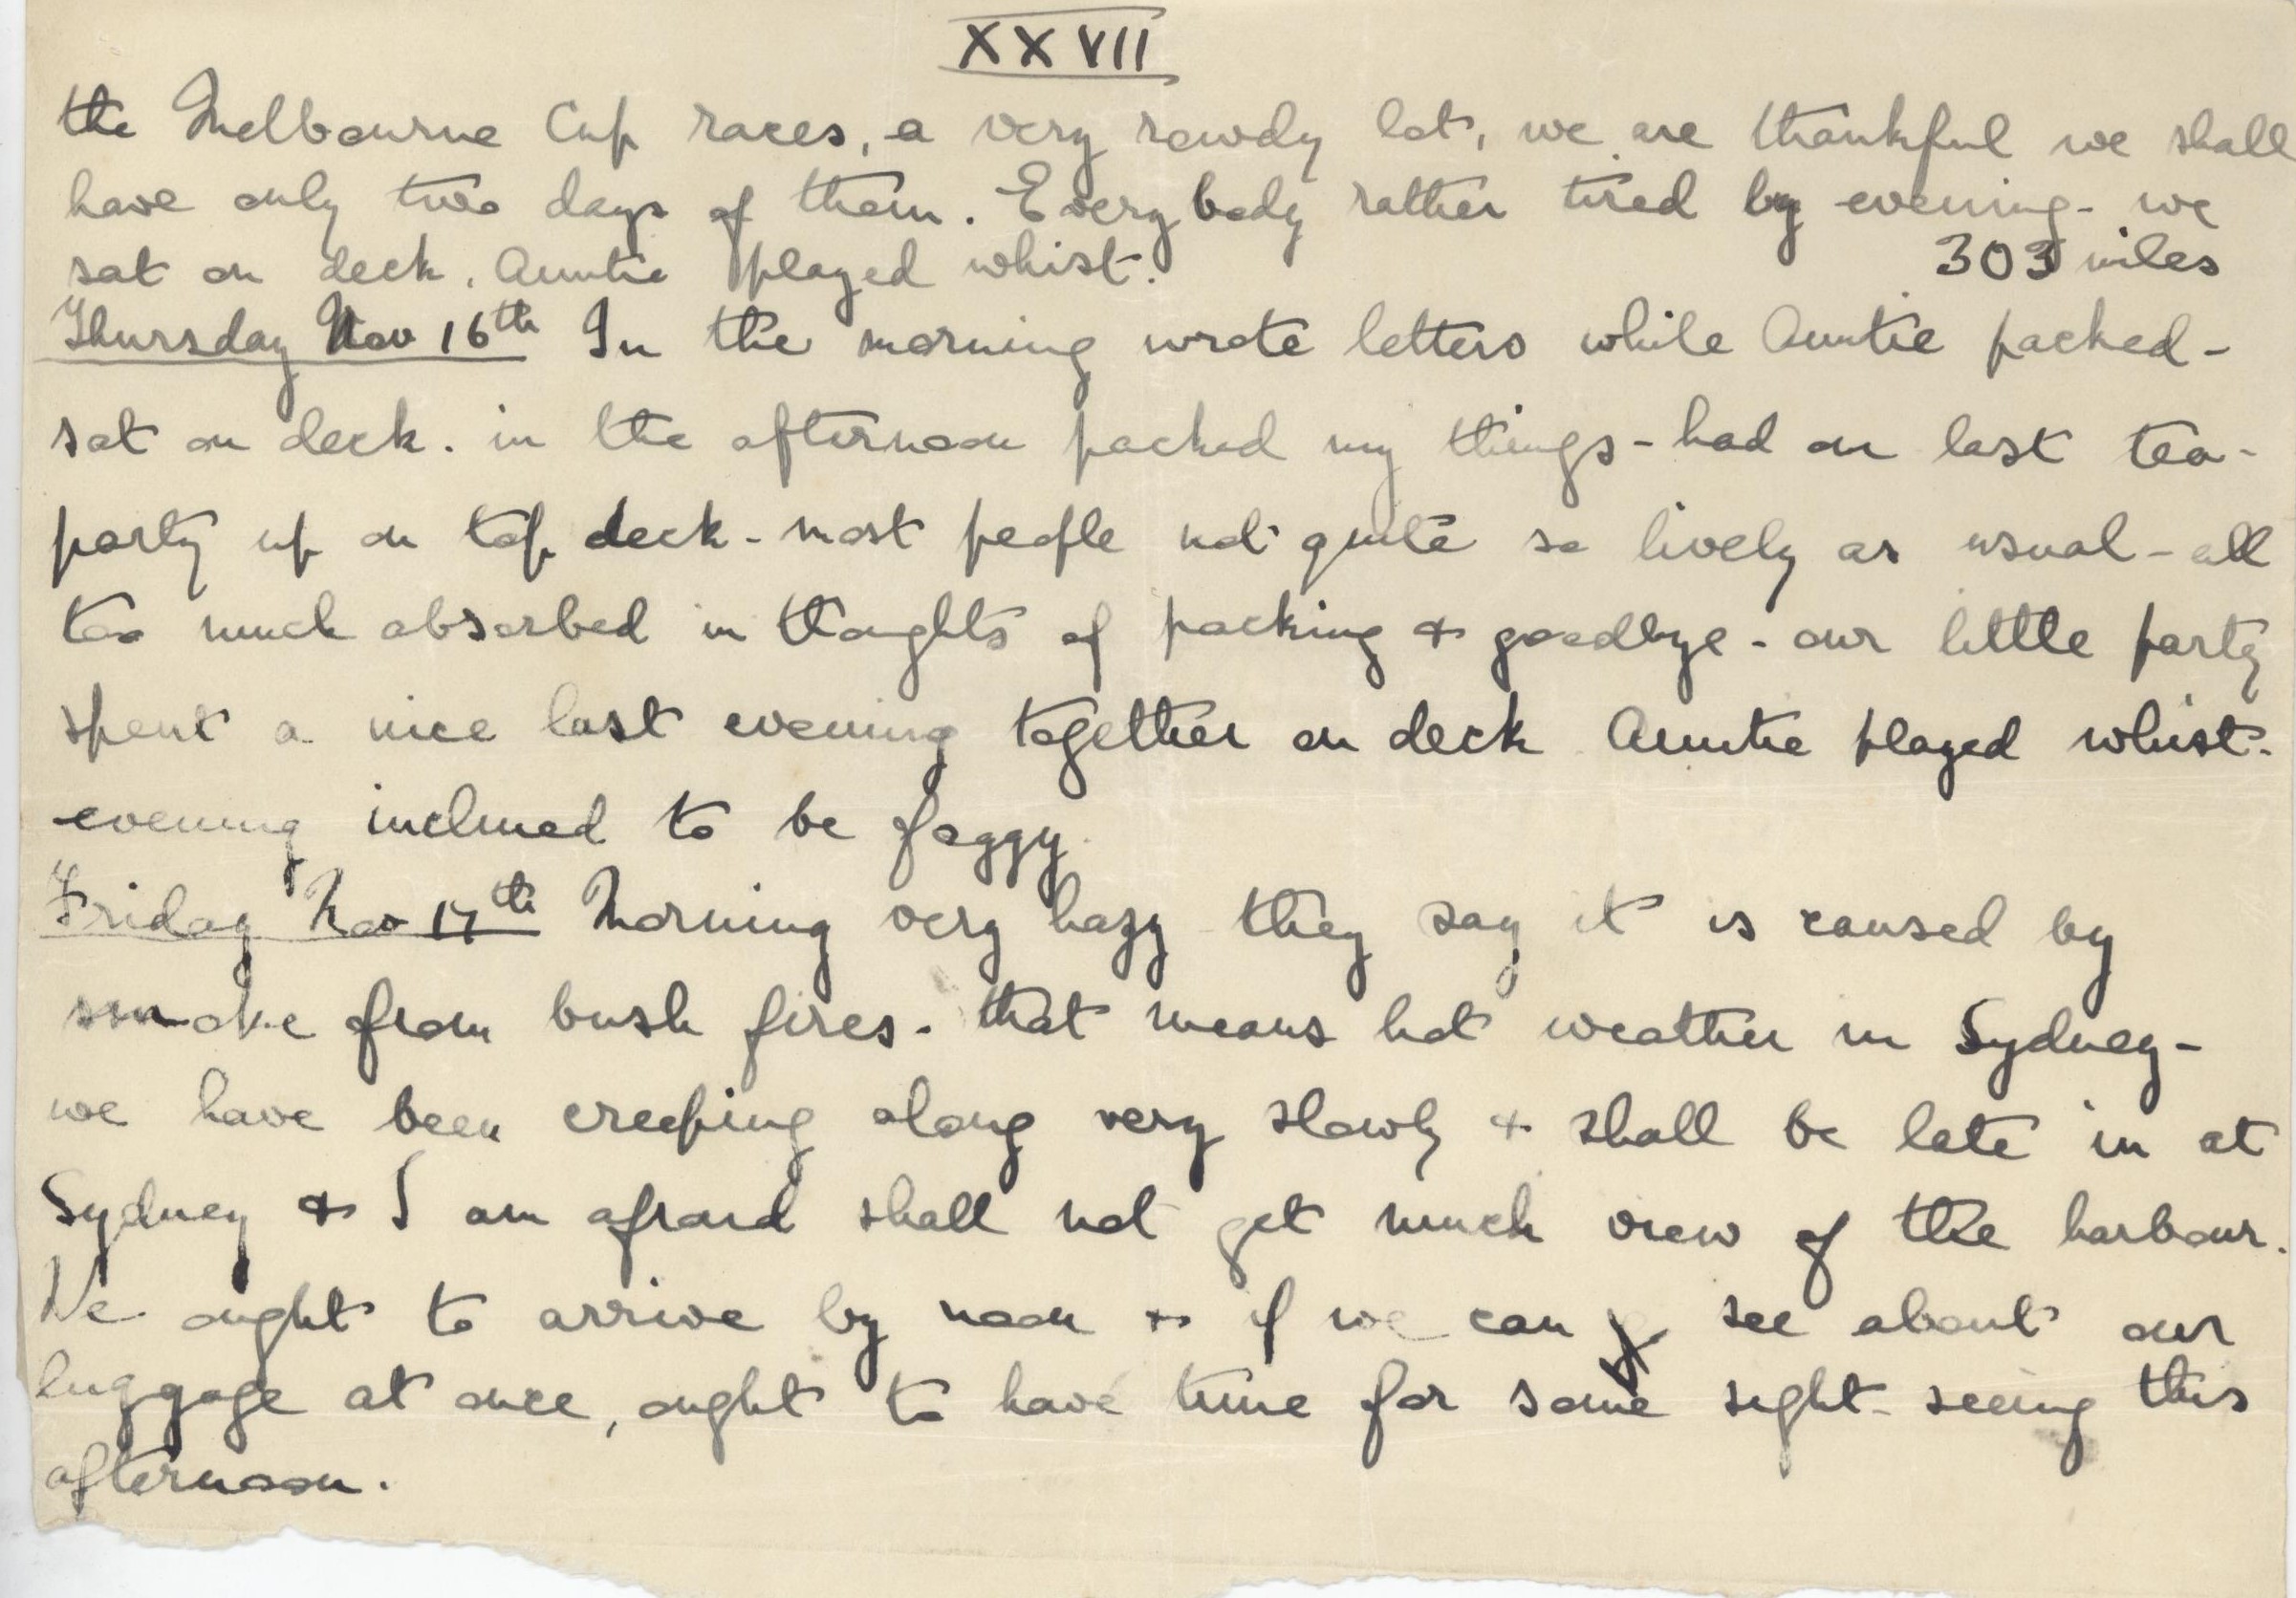 XXVII
the Melbourne Cup races, a very rowdy lot, we are thankful we shall
have only two days of them. Everybody rather tired by evening - we
sat on deck. Auntie played whist. 303 miles
Thursday Nov 16th In the morning wrote letters while Auntie packed -
sat on deck. in the afternoon packed my things - had our last tea-
party up on top deck - most people not quite so lively as usual - all
too much absorbed in thoughts of packing & goodbye - our little party
spent a nice last evening together on deck Auntie played whist -
evening inclined to be foggy.
Friday Nov 17th Morning very hazy they say it is caused by
smoke from bush fires - that means hot weather in Sydney -
we have been creeping along very slowly & shall be late in at
Sydney & I am afraid shall not get much view of the harbour.
We ought to arrive by noon & if we can see about our
luggage at once, ought to have time for some sight-seeing this
afternoon.